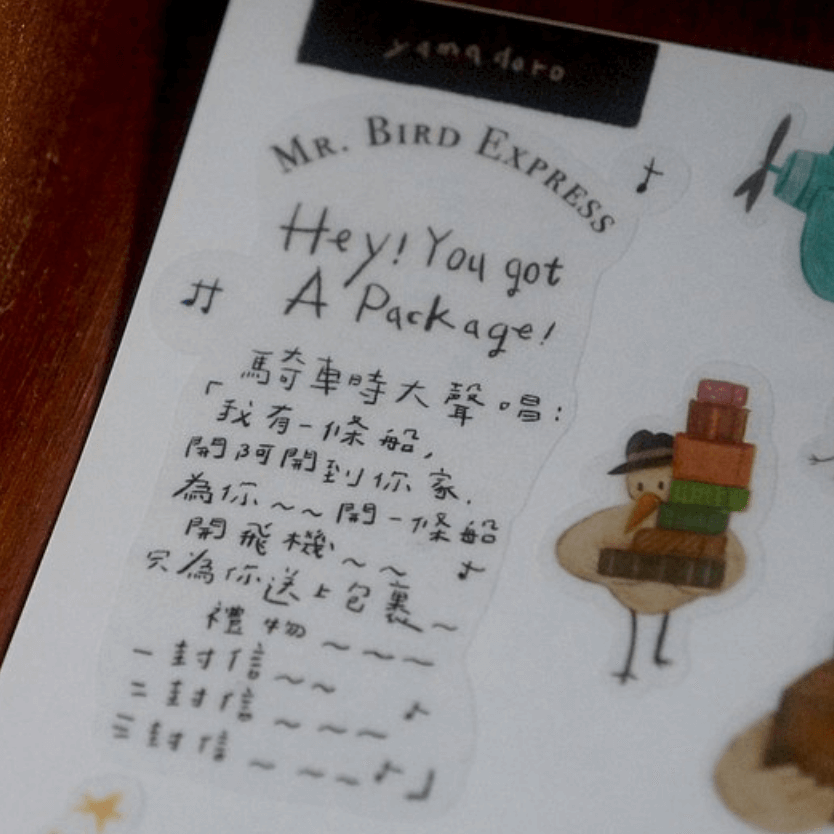 yamadoro
MR. BIRD EXPRESS
Hey! You got
A Package!
騎車時大聲唱:
「我有一條船,
開阿開到你家.
為你~~開一條船
開飛機~~
只為你送上包裹~
禮物~~~~
一封信~~
二封信~~~
三封信~~~~」